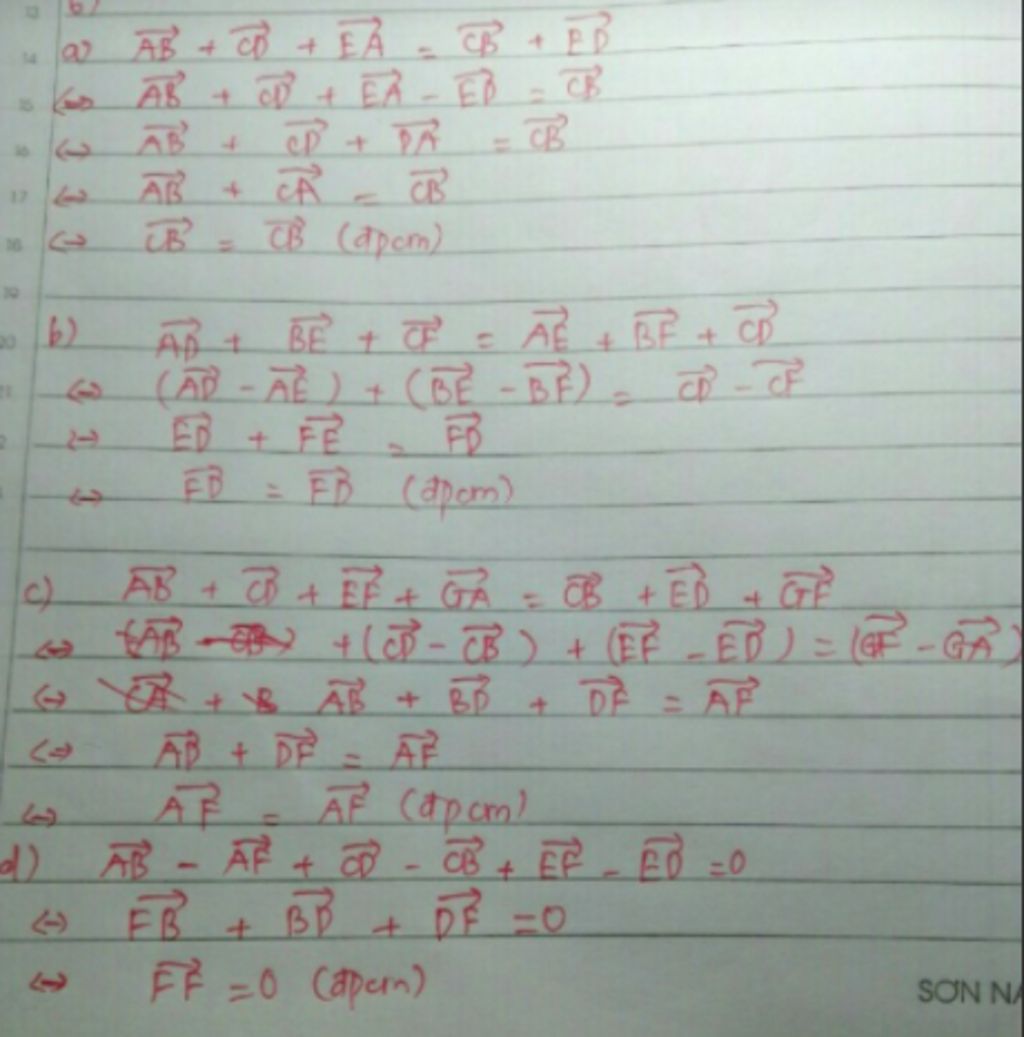 b)
a) $\overrightarrow{AB} + \overrightarrow{CD} + \overrightarrow{EA} = \overrightarrow{CB} + \overrightarrow{ED}$
⇔ $\overrightarrow{AB} + \overrightarrow{CD} + \overrightarrow{EA} - \overrightarrow{ED} = \overrightarrow{CB}$
⇔ $\overrightarrow{AB} + \overrightarrow{CD} + \overrightarrow{DA} = \overrightarrow{CB}$
⇔ $\overrightarrow{AB} + \overrightarrow{CA} = \overrightarrow{CB}$
⇔ $\overrightarrow{CB} = \overrightarrow{CB}$ (đpcm)
b) $\overrightarrow{AD} + \overrightarrow{BE} + \overrightarrow{CF} = \overrightarrow{AE} + \overrightarrow{BF} + \overrightarrow{CD}$
⇔ $(\overrightarrow{AD} - \overrightarrow{AE}) + (\overrightarrow{BE} - \overrightarrow{BF}) = \overrightarrow{CD} - \overrightarrow{CF}$
⇔ $\overrightarrow{ED} + \overrightarrow{FE} = \overrightarrow{FD}$
⇔ $\overrightarrow{FD} = \overrightarrow{FD}$ (đpcm)
c) $\overrightarrow{AB} + \overrightarrow{CD} + \overrightarrow{EF} + \overrightarrow{GA} = \overrightarrow{CB} + \overrightarrow{ED} + \overrightarrow{GF}$
⇔ $\overrightarrow{AB} + (\overrightarrow{CD} - \overrightarrow{CB}) + (\overrightarrow{EF} - \overrightarrow{ED}) = (\overrightarrow{GF} - \overrightarrow{GA})$
⇔ $\overrightarrow{AB} + \overrightarrow{BD} + \overrightarrow{DF} = \overrightarrow{AF}$
⇔ $\overrightarrow{AD} + \overrightarrow{DF} = \overrightarrow{AF}$
⇔ $\overrightarrow{AF} = \overrightarrow{AF}$ (đpcm)
d) $\overrightarrow{AB} - \overrightarrow{AF} + \overrightarrow{CD} - \overrightarrow{CB} + \overrightarrow{EF} - \overrightarrow{ED} = 0$
⇔ $\overrightarrow{FB} + \overrightarrow{BD} + \overrightarrow{DF} = 0$
⇔ $\overrightarrow{FF} = 0$ (đpcm)
SƠN